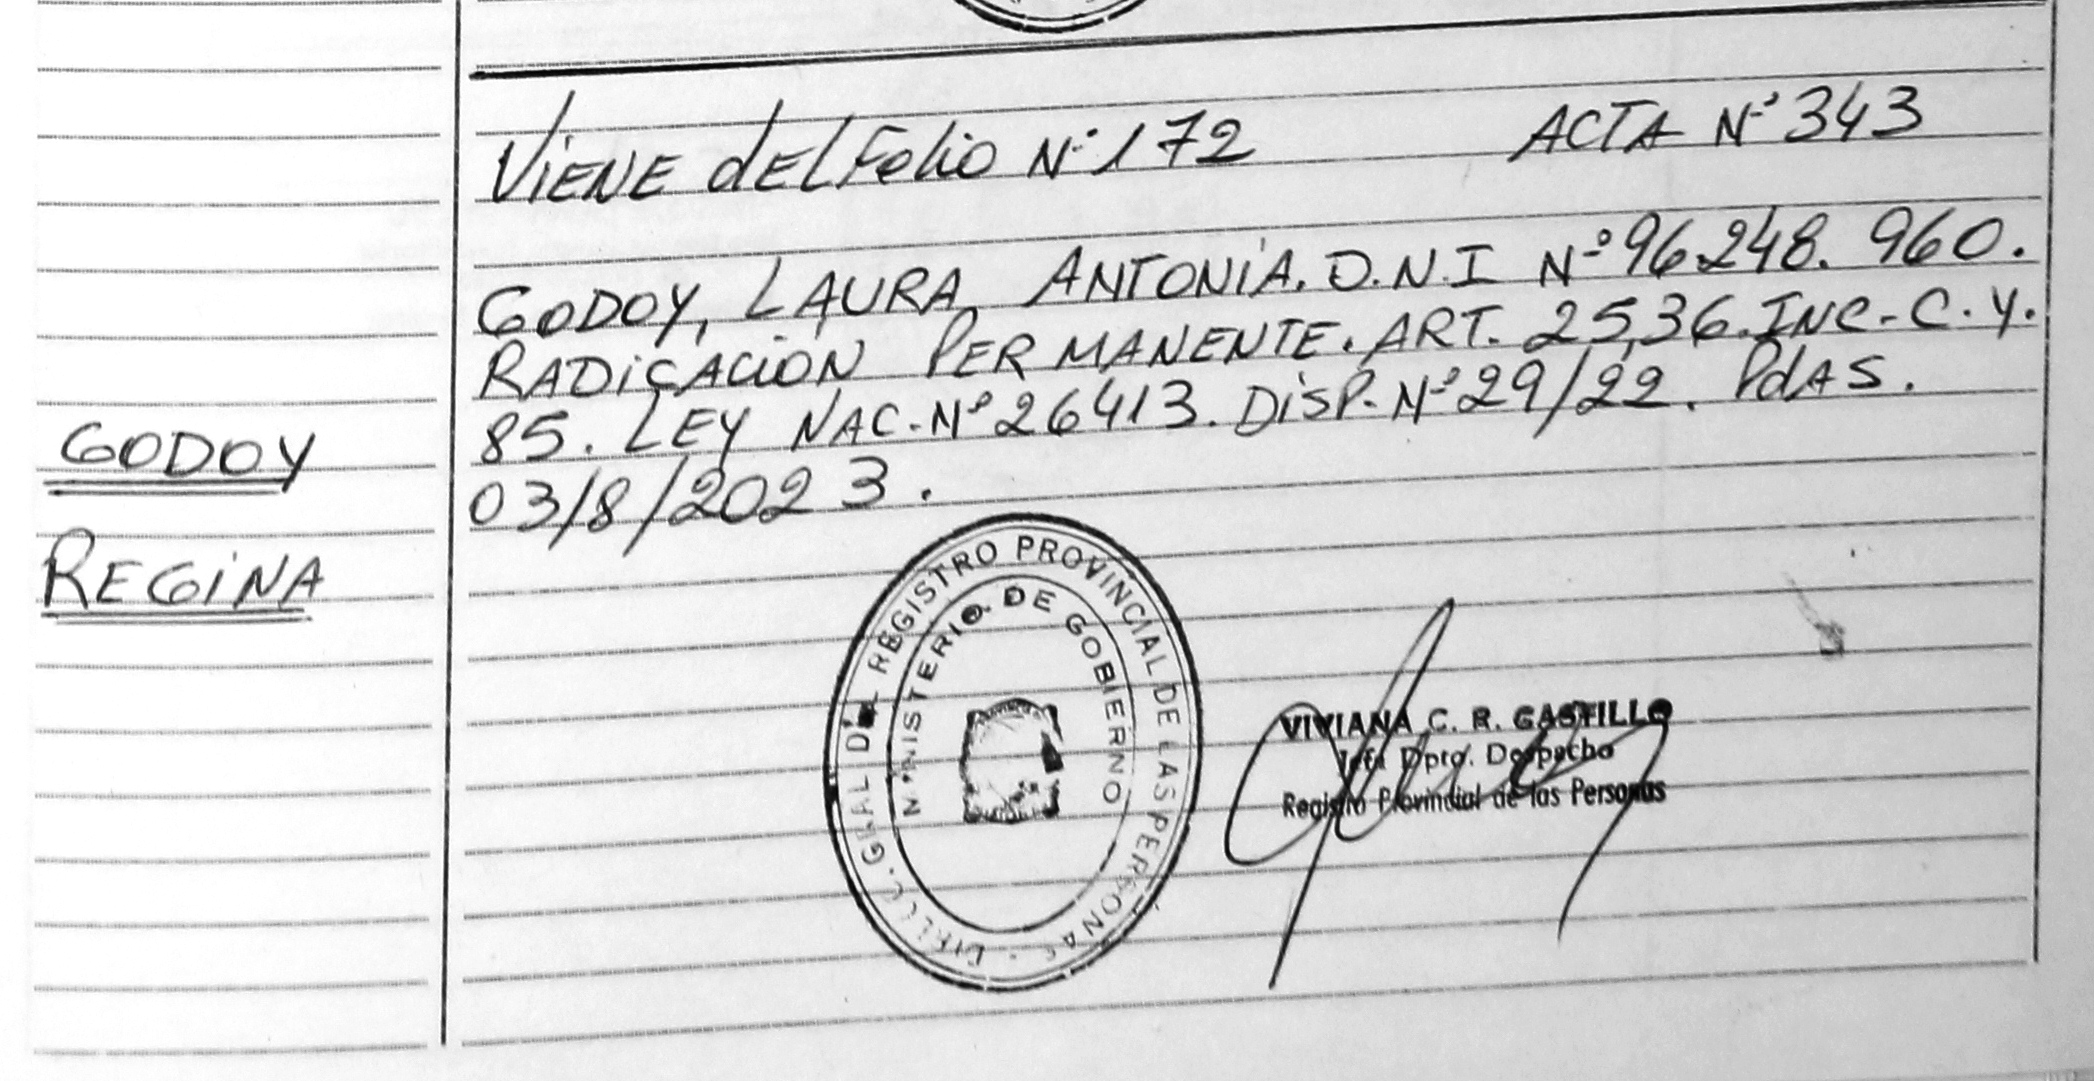 ViENE dEL FoliO Nº 172 ACTA Nº 343
GODOY, LAURA ANTONiA. D.N.I Nº 96.248.960.
RADiCACiON PERMANENTE. ART. 25,36. INC-C.Y.
85. LEY NAC. Nº 26413. DiSP. Nº 29/22. PdAS.
03/8/2023.
GODOY
REGiNA
DIRECC. GRAL DEL REGISTRO PROVINCIAL DE LAS PERSONAS
MINISTERIO DE GOBIERNO
VIVIANA C. R. CASTILLO
Jefa Dpto. Despacho
Registro Provincial de las Personas